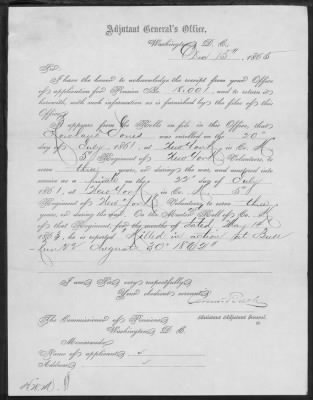 Adjutant General's Office,
Washington, D. C.
15th 1865
Sir:
I have the honor to acknowledge the receipt from your Office
of application for Pension No. 18.001, and to return it
herewith, with such information as is furnished by the files of this
Office.
It appears from Co. Rolls on file in this Office, that
Jones was enrolled on the 20th
day of July, 1861, at New York in Co. K
5" Regiment of New York Volunteers, to
serve three years, or during the war, and mustered into
service as a private on the 22d day of July
1861, at New York, in Co. K, 5"
Regiment of New York Volunteers, to serve three
years, or during the war. On the Muster Roll of Co. K
of that Regiment, for the months of dated May 14
1863, he is reported Killed in action at Bull
Run Va August 30th 1862"
I am, Sir, very respectfully,
Your obedient servant,
Assistant Adjutant General.
The Commissioner of Pensions
Washington, D. C.
Memoranda:
Name of applicant,
Address,